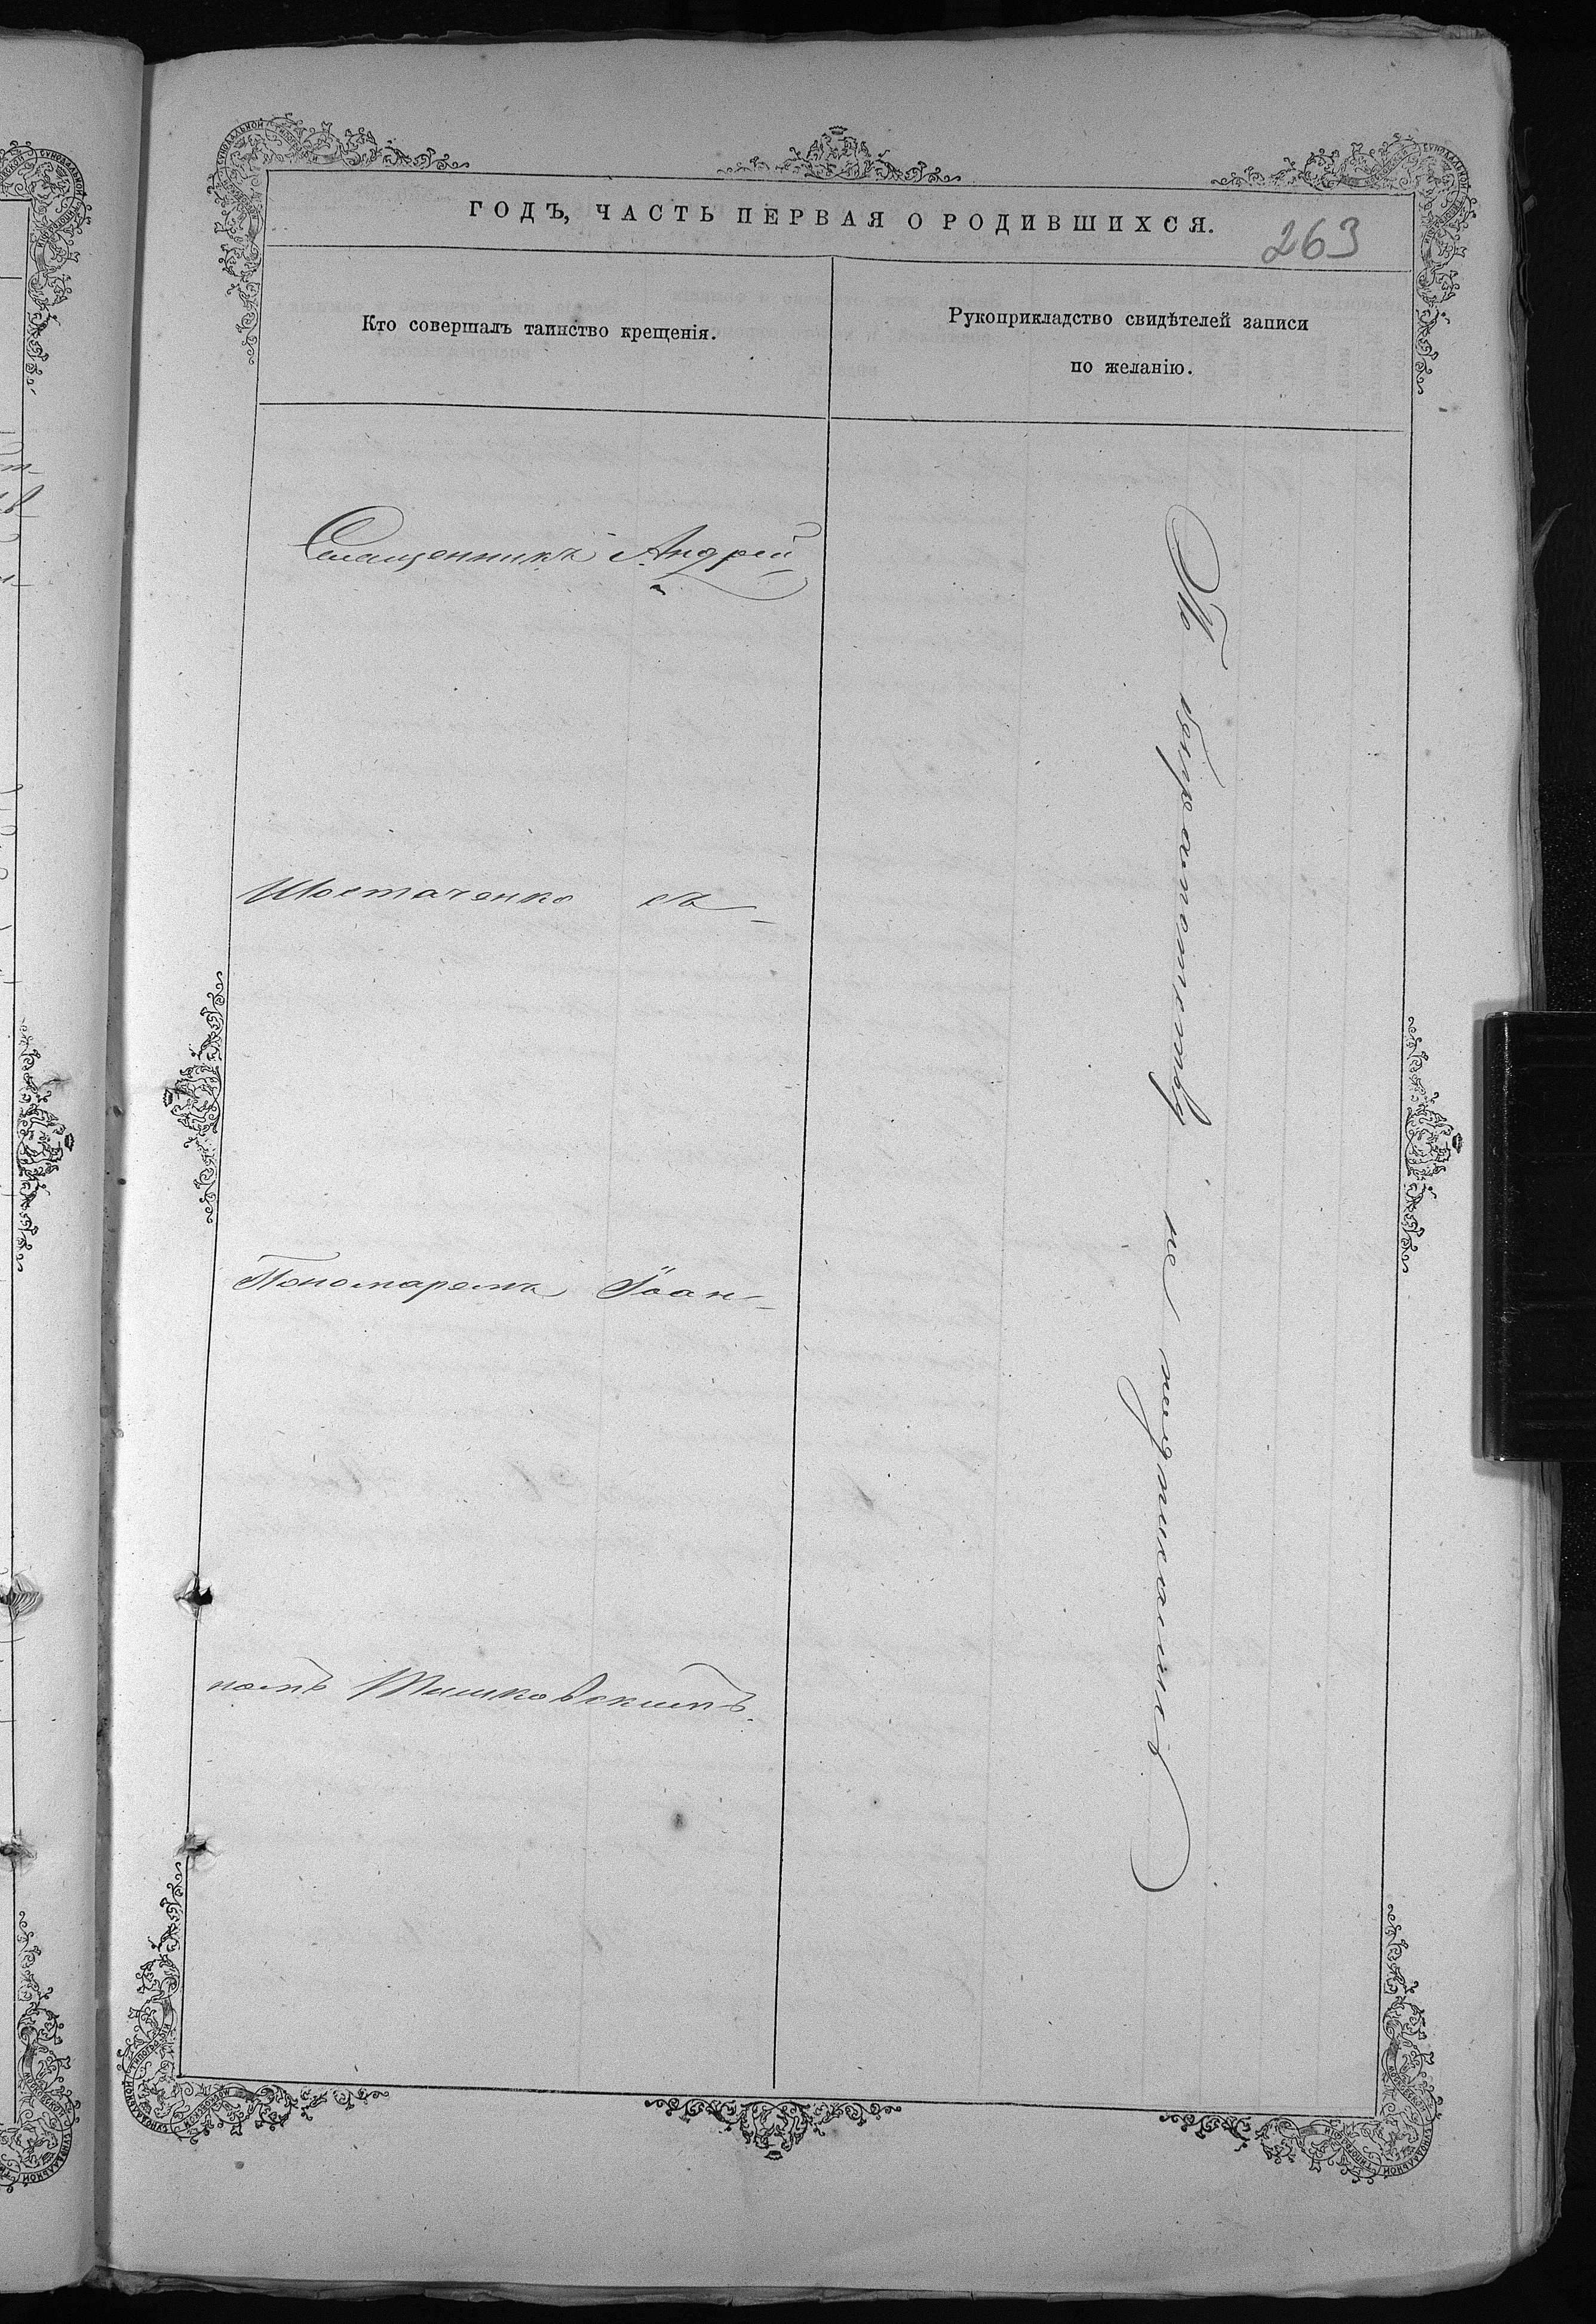 ГОДЪ, ЧАСТЬ ПЕРВАЯ О РОДИВШИХСЯ.
263
Кто совершалъ таинство крещенія.
Рукоприкладство свидѣтелей записи
по желанію.
Священникъ Андрей
Шостаченко съ
Пономаремъ Іоан-
номъ Тишковскимъ.
не